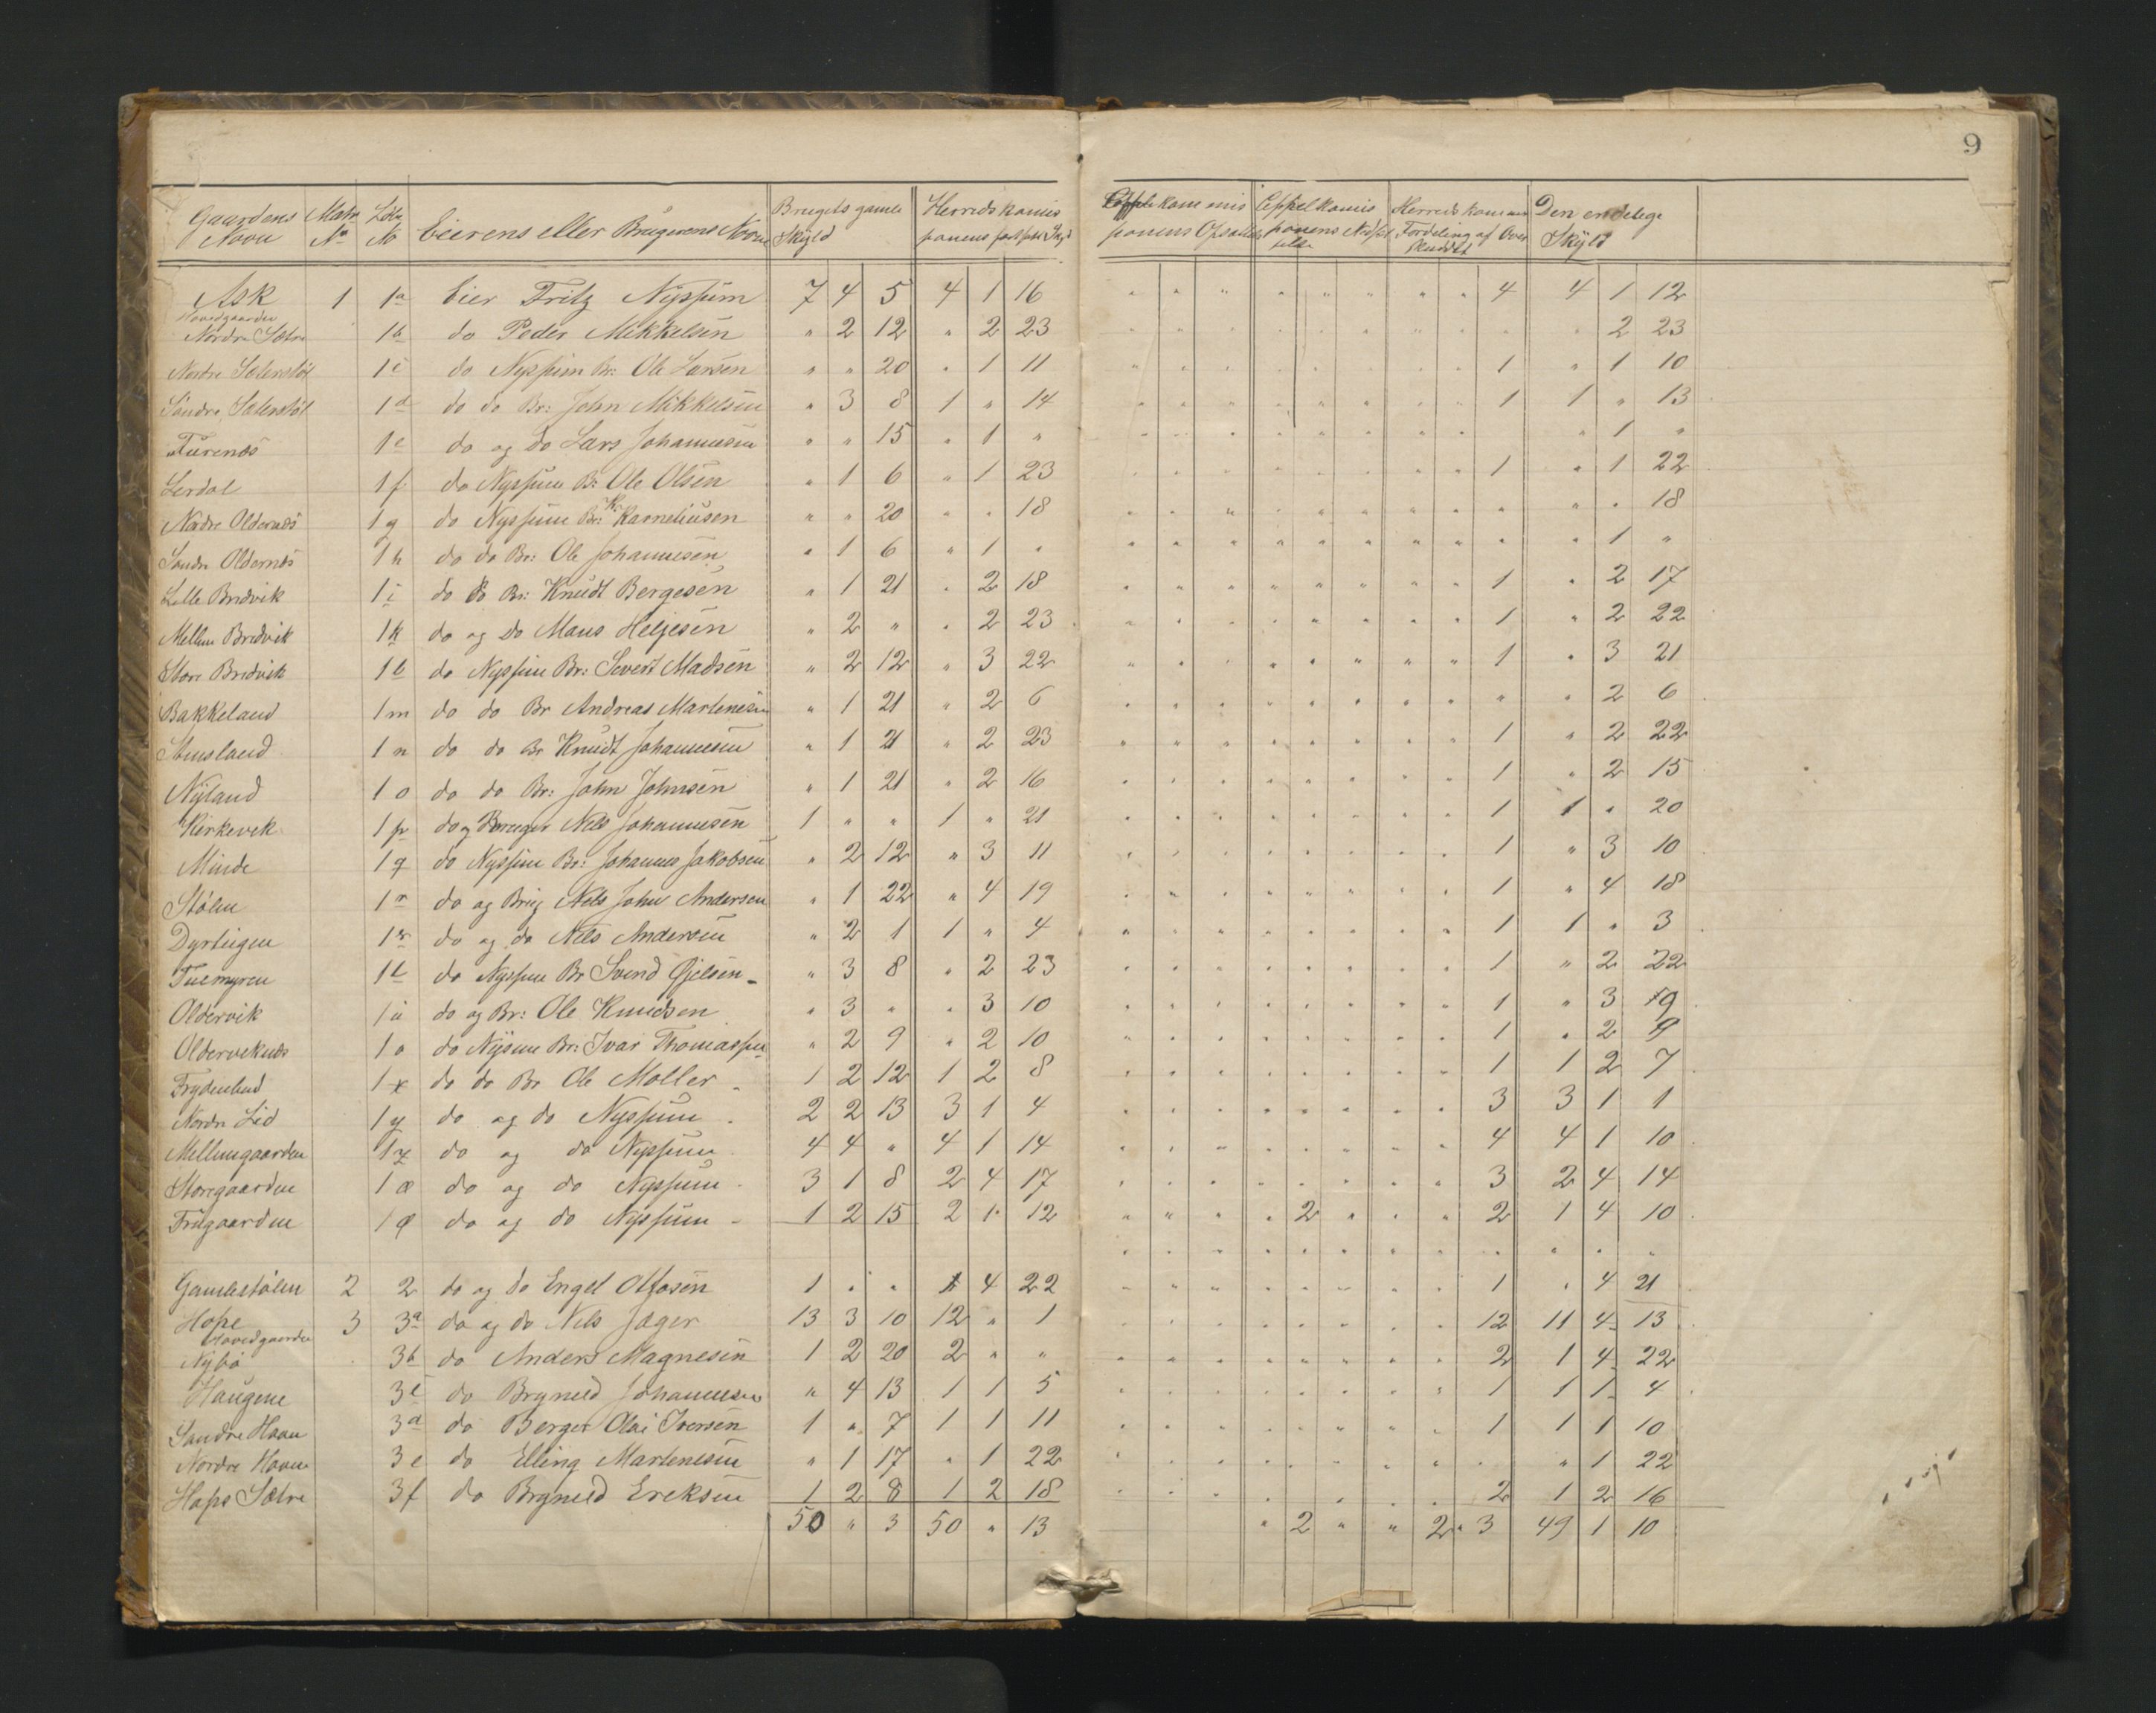 9
Gaardens Navn Matr. No Löbe No Eierens eller Brugerens Navn Brugets gamle Skyld Herredskomis ponens Skyld Opsættelse Oppelkomis ponens Herredskommis Fordeling af Over skuddet Den endelige Skyld
Ask 1 1a Eier Fritz Nyssum 7 4 5 4 1 16 " " " " " " " " 4 4 1 12
Hovedgaarden
Nordre Sætre 1b do Peder Mikkelsen " 2 12 " 2 23 " " " " " " " " " " 2 23
Nordre Sæterstöl 1c do Nyssum Br: Ole Larsen " " 20 " 1 11 " " " " " " " " 1 " 1 10
Söndre Sæterstöl 1d do do Br: John Mikkelsen " 3 8 1 " 14 " " " " " " " " 1 1 " 13
Furenæs 1e do og do Lars Johannesen " " 15 " 1 " " " " " " " " " " 1 "
Lerdal 1f do Nyssum Br: Ole Olsen " 1 6 " 1 23 " " " " " " " " 1 " 1 22
Nordre Oldernæs 1g do Nyssum Br: K. Karneliusen " " 20 " " 18 " " " " " " " " " " " 18
Söndre Oldernæs 1h do do Br: Ole Johannesen " 1 6 " 1 " " " " " " " " " " " 1 "
Lille Bredvik 1i do do Br: Knudt Bergesen " 1 21 " 2 18 " " " " " " " " 1 " 2 17
Mellem Bredvik 1k do og do Mons Heljesen " 2 " " 2 23 " " " " " " " " 1 " 2 22
Store Bredvik 1l do Nyssum Br: Severt Madsen " 2 12 " 3 22 " " " " " " " " 1 " 3 21
Bakkeland 1m do do Br Andreas Martenesen " 1 21 " 2 6 " " " " " " " " " " 2 6
1n do do Br Knudt Johannesen " 1 21 " 2 23 " " " " " " " " 1 " 2 22
Nyland 1o do do Br: John Johnsen " 1 21 " 2 16 " " " " " " " " 1 " 2 15
Kirkevik 1p do og Bruger Nels Johannesen 1 " " 1 " 21 " " " " " " " " 1 1 " 20
Minde 1q do Nyssum Br: Johannes Jakobsen " 2 12 " 3 11 " " " " " " " " 1 " 3 10
Stölen 1r do og Brug Nels John Andersen " 1 22 " 4 19 " " " " " " " " 1 " 4 18
Dyrteigen 1s do og do Nils Andersen " 2 1 1 " 4 " " " " " " " " 1 1 " 3
Tuemyren 1t do Nyssum Br Svend Øjelsen " 3 8 " 2 23 " " " " " " " " 1 " 2 22
Oldervik 1u do og Br: Ole Knudsen " 3 " " 3 10 " " " " " " " " 1 " 3 9
Olderviknæs 1v do Nyssum Br: Ivar Thomassen " 2 9 " 2 10 " " " " " " " " 1 " 2 9
Frydenlund 1x do do Br Ole Moller 1 2 12 1 2 8 " " " " " " " " 1 1 2 7
Nordre Lid 1y do og do Nyssum 2 2 13 3 1 4 " " " " " " " " 3 3 1 1
Mellemgaarden 1z do og do Nyssum 4 4 " 4 1 14 " " " " " " " " 4 4 1 10
Storegaarden 1æ do og do Nyssum 3 1 8 2 4 17 " " " " " " " " 3 2 4 14
Frugaarden 1ø do og do Nyssum 1 2 15 2 1 12 " " " " 2 " " " 2 1 4 10
Gamlestölen 2 2 do og do Engel Olfasen 1 " " 4 22 " " " " " " " " 1 " 4 21
Hope 3 3a do og do Nels Jæger 13 3 10 12 " 1 " " " " " " " " 12 11 4 13
Hovedgaarden
Nybö 3b do Anders Magnesen 1 2 20 2 " " " " " " " " " " 2 1 4 22
Haugene 3c do Brynild Johannesen " 4 13 1 1 5 " " " " " " " " 1 1 1 4
Söndre Havn 3d do Berger Olai Iversen 1 " 7 1 1 11 " " " " " " " " 1 1 1 10
Nordre Havn 3e do Elling Martenesen " 1 17 " 1 22 " " " " " " " " " " 1 22
Hops Sætre 3f do Brynild Ereksen 1 2 8 1 2 18 " " " " " " " 2 1 2 16
50 " 3 50 " 13 " 2 " " 2 " 3 49 1 10